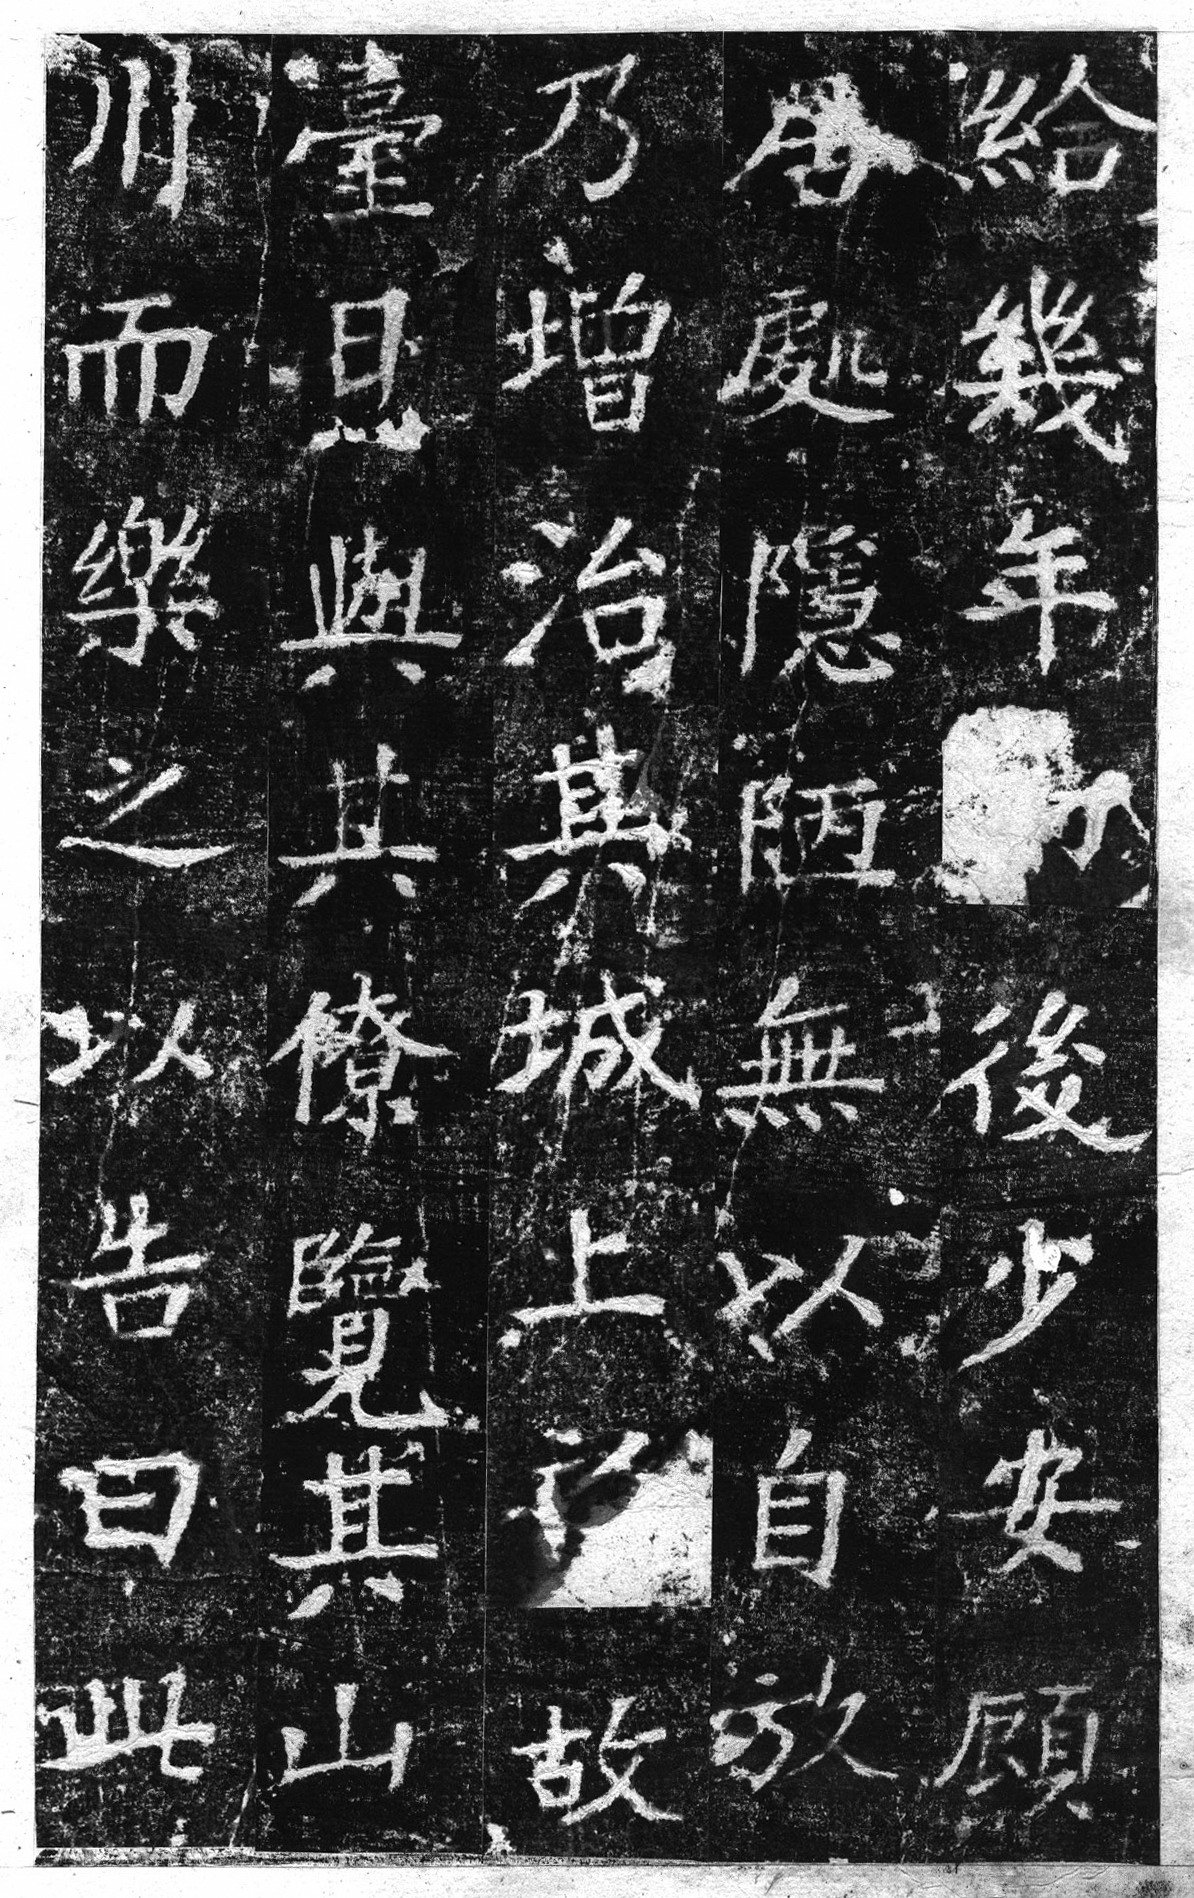 給幾年後少安顧
居處隱陋無以自放
乃增治其城上故
臺日與其僚覽其山
川而樂之以告曰此